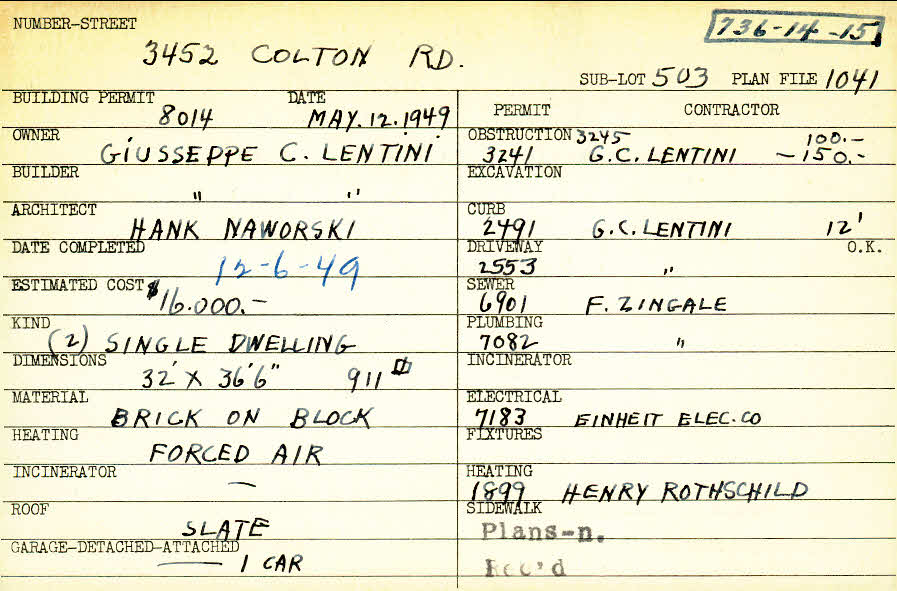 NUMBER-STREET
736-14-15
3452 COLTON RD.
SUB-LOT 503 PLAN FILE 1041
BUILDING PERMIT DATE
8014 MAY.12.1949
OWNER
GIUSSEPPE C. LENTINI
BUILDER
" "
ARCHITECT
HANK NAWORSKI
DATE COMPLETED
12-6-49
ESTIMATED COST $16.000.-
KIND
(2) SINGLE DWELLING
DIMENSIONS
32' X 36'6" 911
MATERIAL
BRICK ON BLOCK
HEATING
FORCED AIR
INCINERATOR
—
ROOF
SLATE
GARAGE-DETACHED-ATTACHED
1 CAR
PERMIT CONTRACTOR
OBSTRUCTION 3245 100.-
3241 G.C. LENTINI -150.-
EXCAVATION
CURB
2491 G.C. LENTINI 12'
DRIVEWAY O.K.
2553 "
SEWER
6901 F. ZINGALE
PLUMBING
7082 "
INCINERATOR
ELECTRICAL
7183 EINHEIT ELEC.CO
FIXTURES
HEATING
1899 HENRY ROTHSCHILD
SIDEWALK
Plans-n.
Rec'd